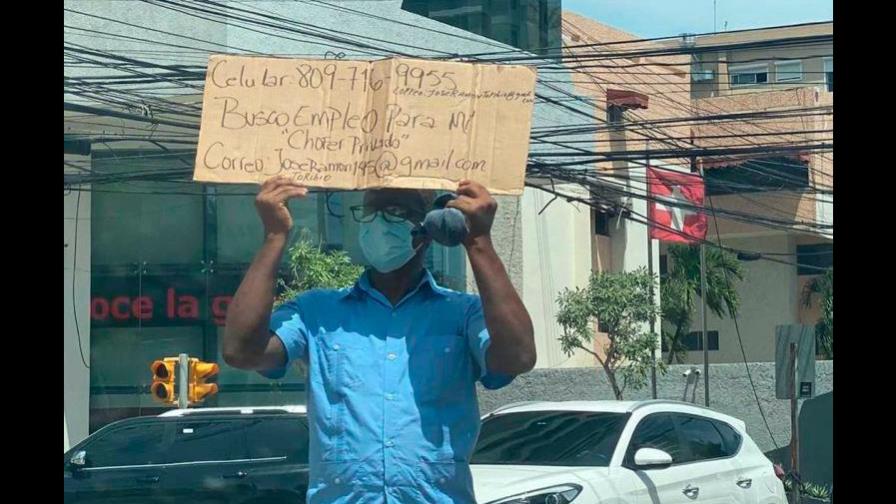 Celular: 809-716-9955
Correo: JoseRamonToribio@gmail.com
Busco Empleo Para Mi
"Chofer Privado"
Correo: JoseRamon145@gmail.com
Toribio
oce la g